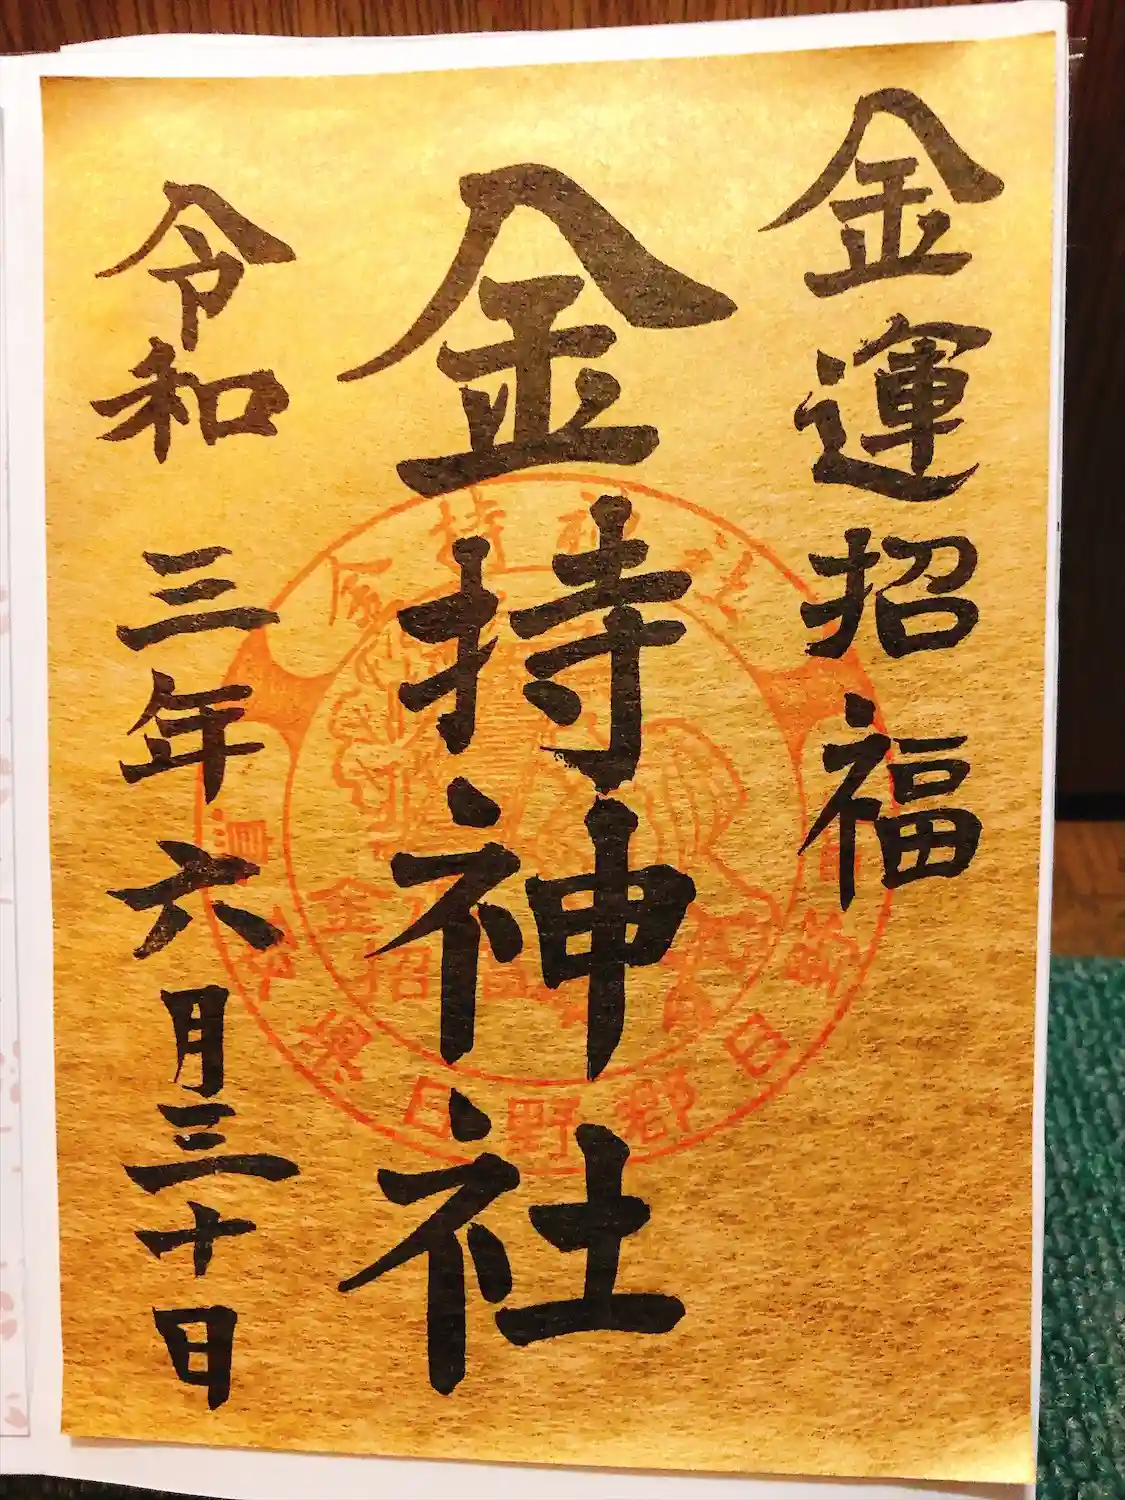 金運招福
金持神社
令和 三年六月三十日
金持神社
県日野郡日
金
招